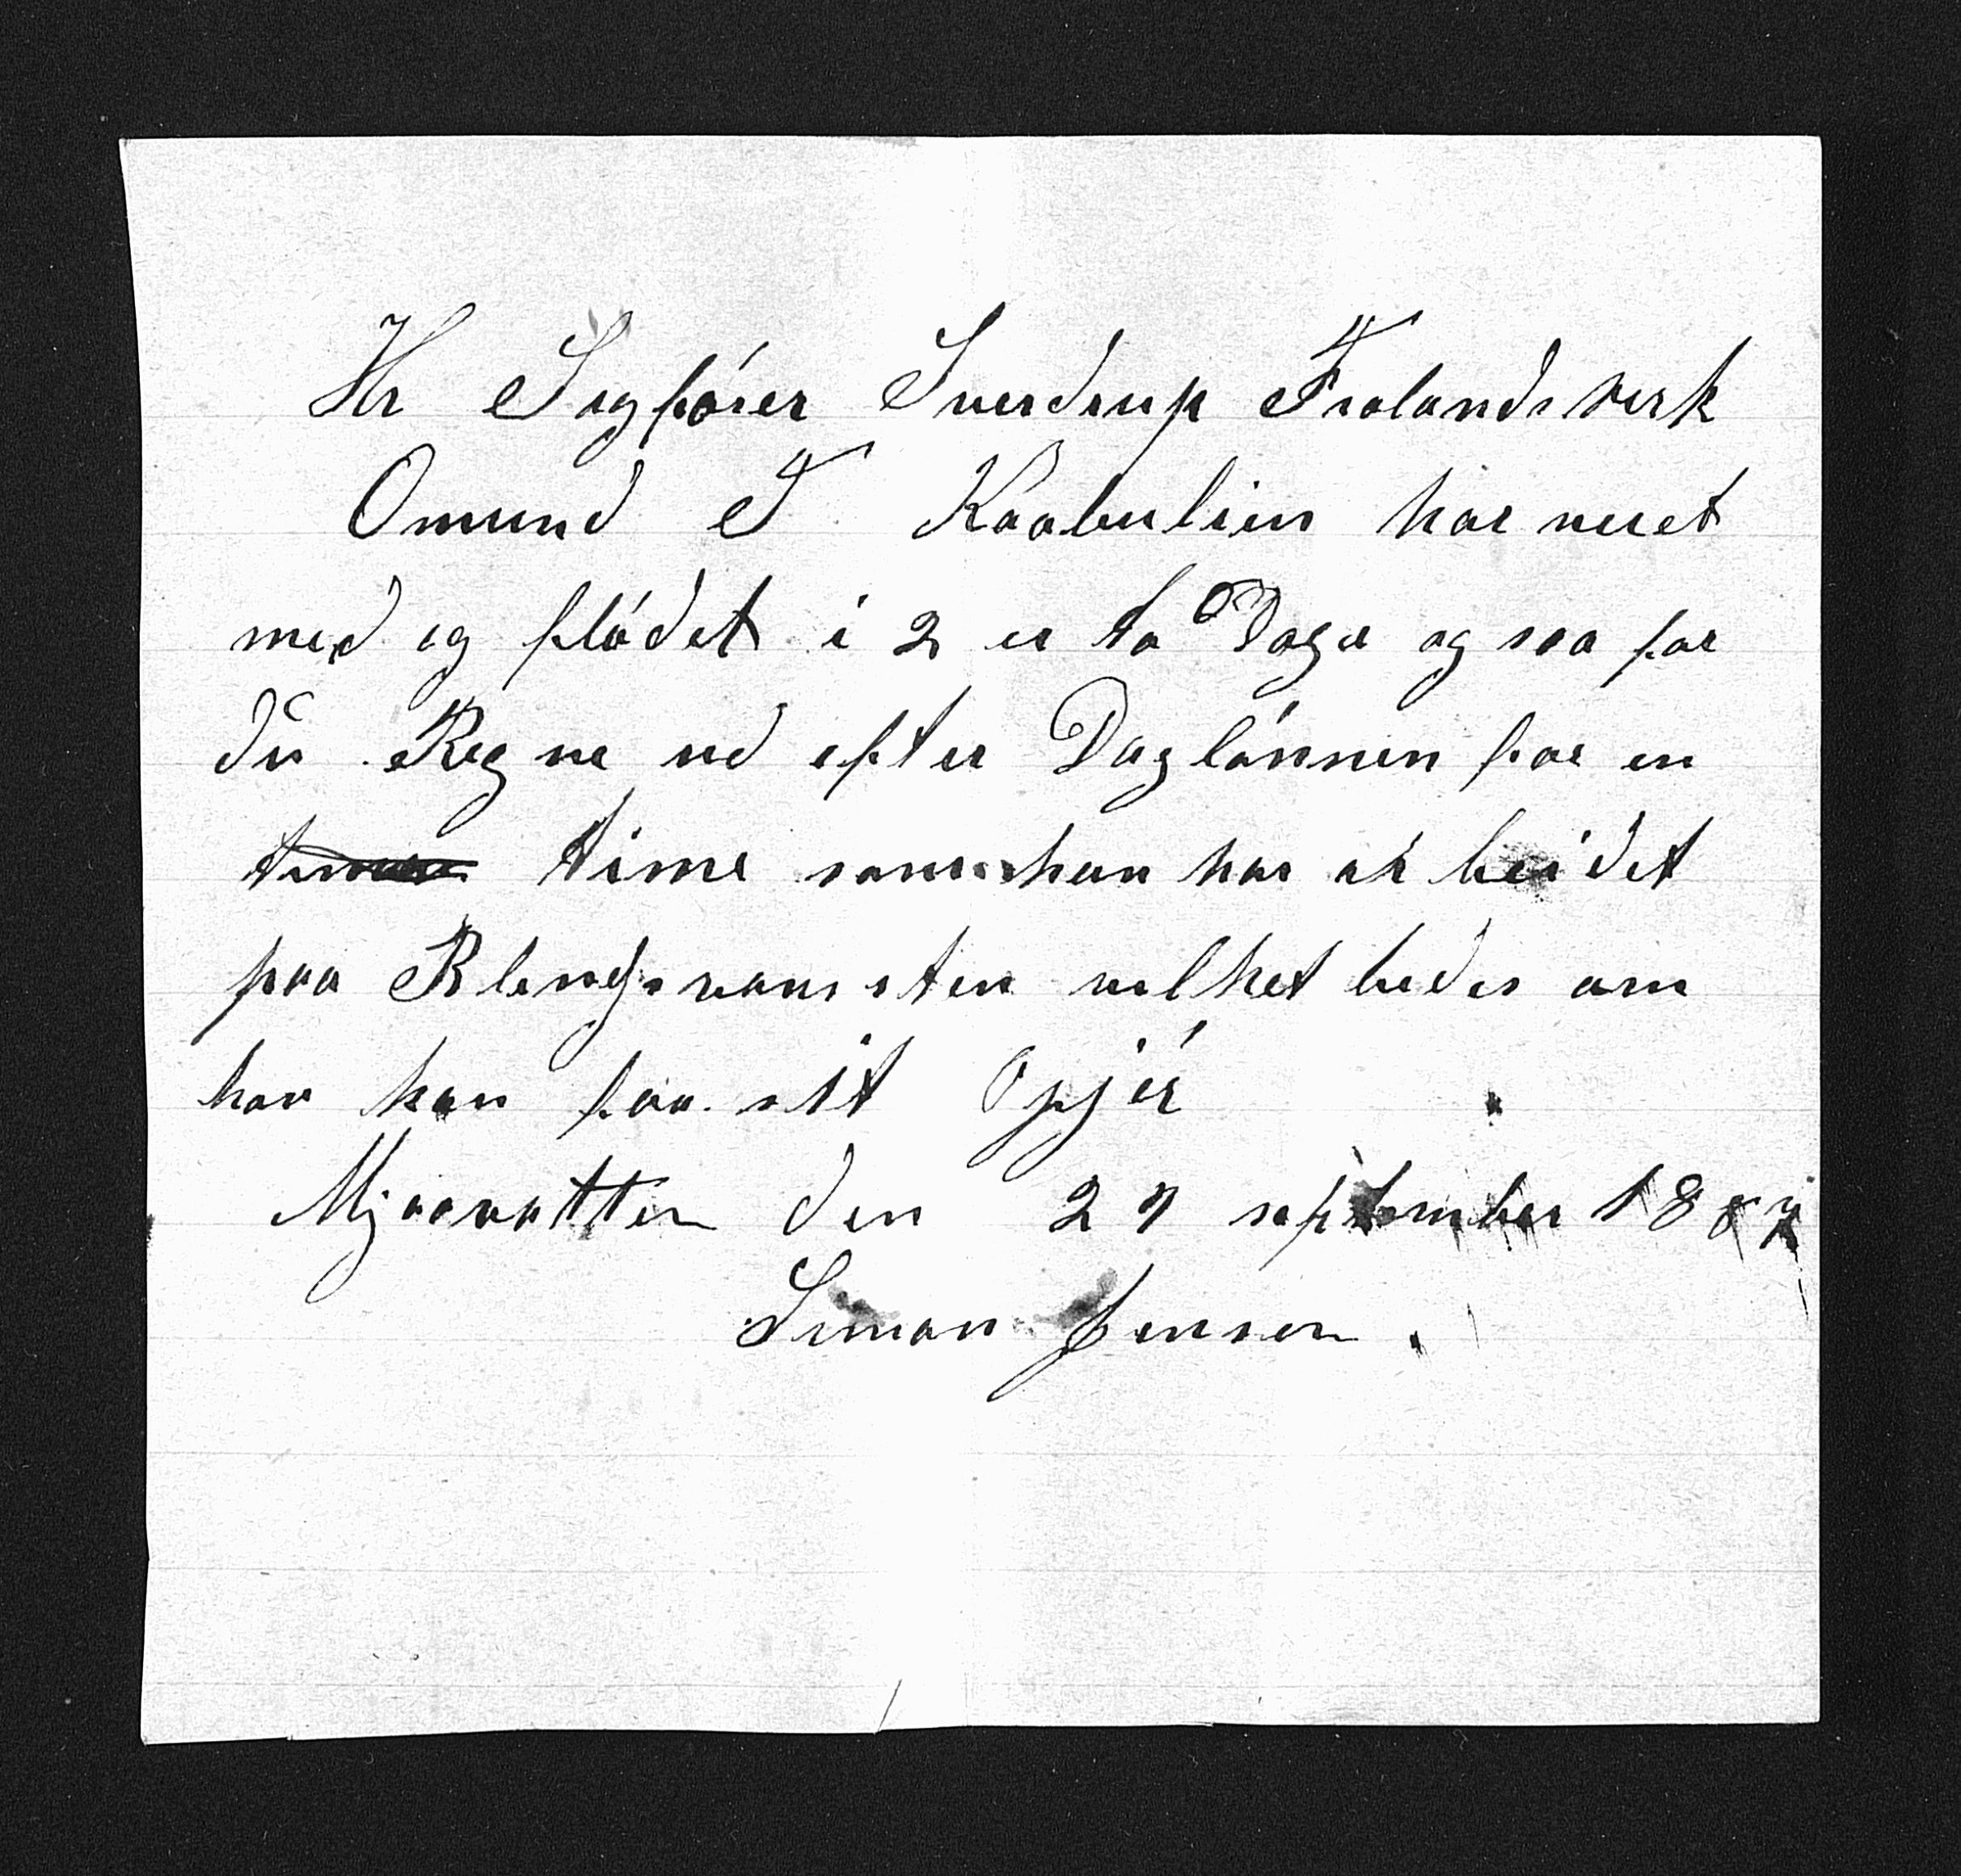 Hr Sagfører Sverdrup Frolands verk
Omund T Kaabulien har veret
med og flødet i 2 er to Dage og saa faar
du Regne ud efter Daglønnen for en
time som han har arbeidet
paa Blengsvansten velket bedes om
han kan faa sit Opjér
Mjaavatten den 27 september 1887
Simon Jensen.